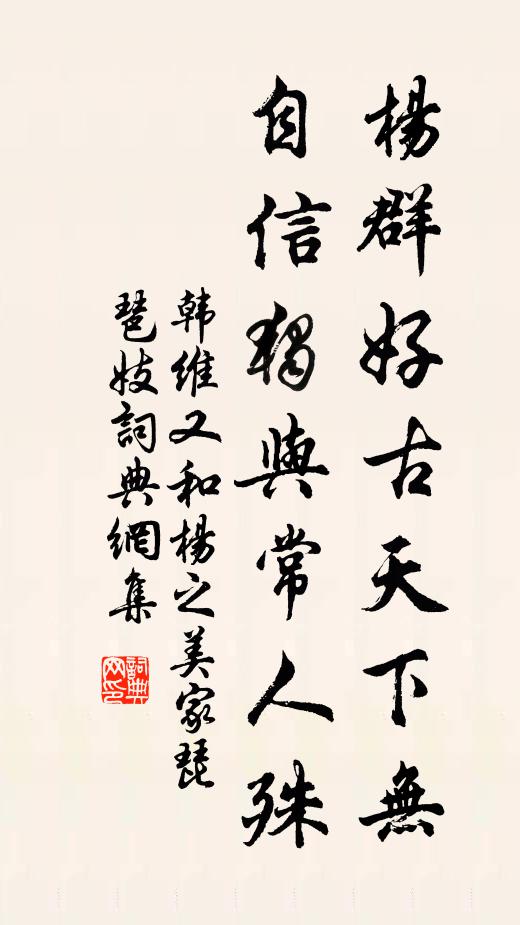 楊群好古天下無
自信獨與常人殊
韩維又和楊之美家琵
琶妓詞典網集
詞典网印